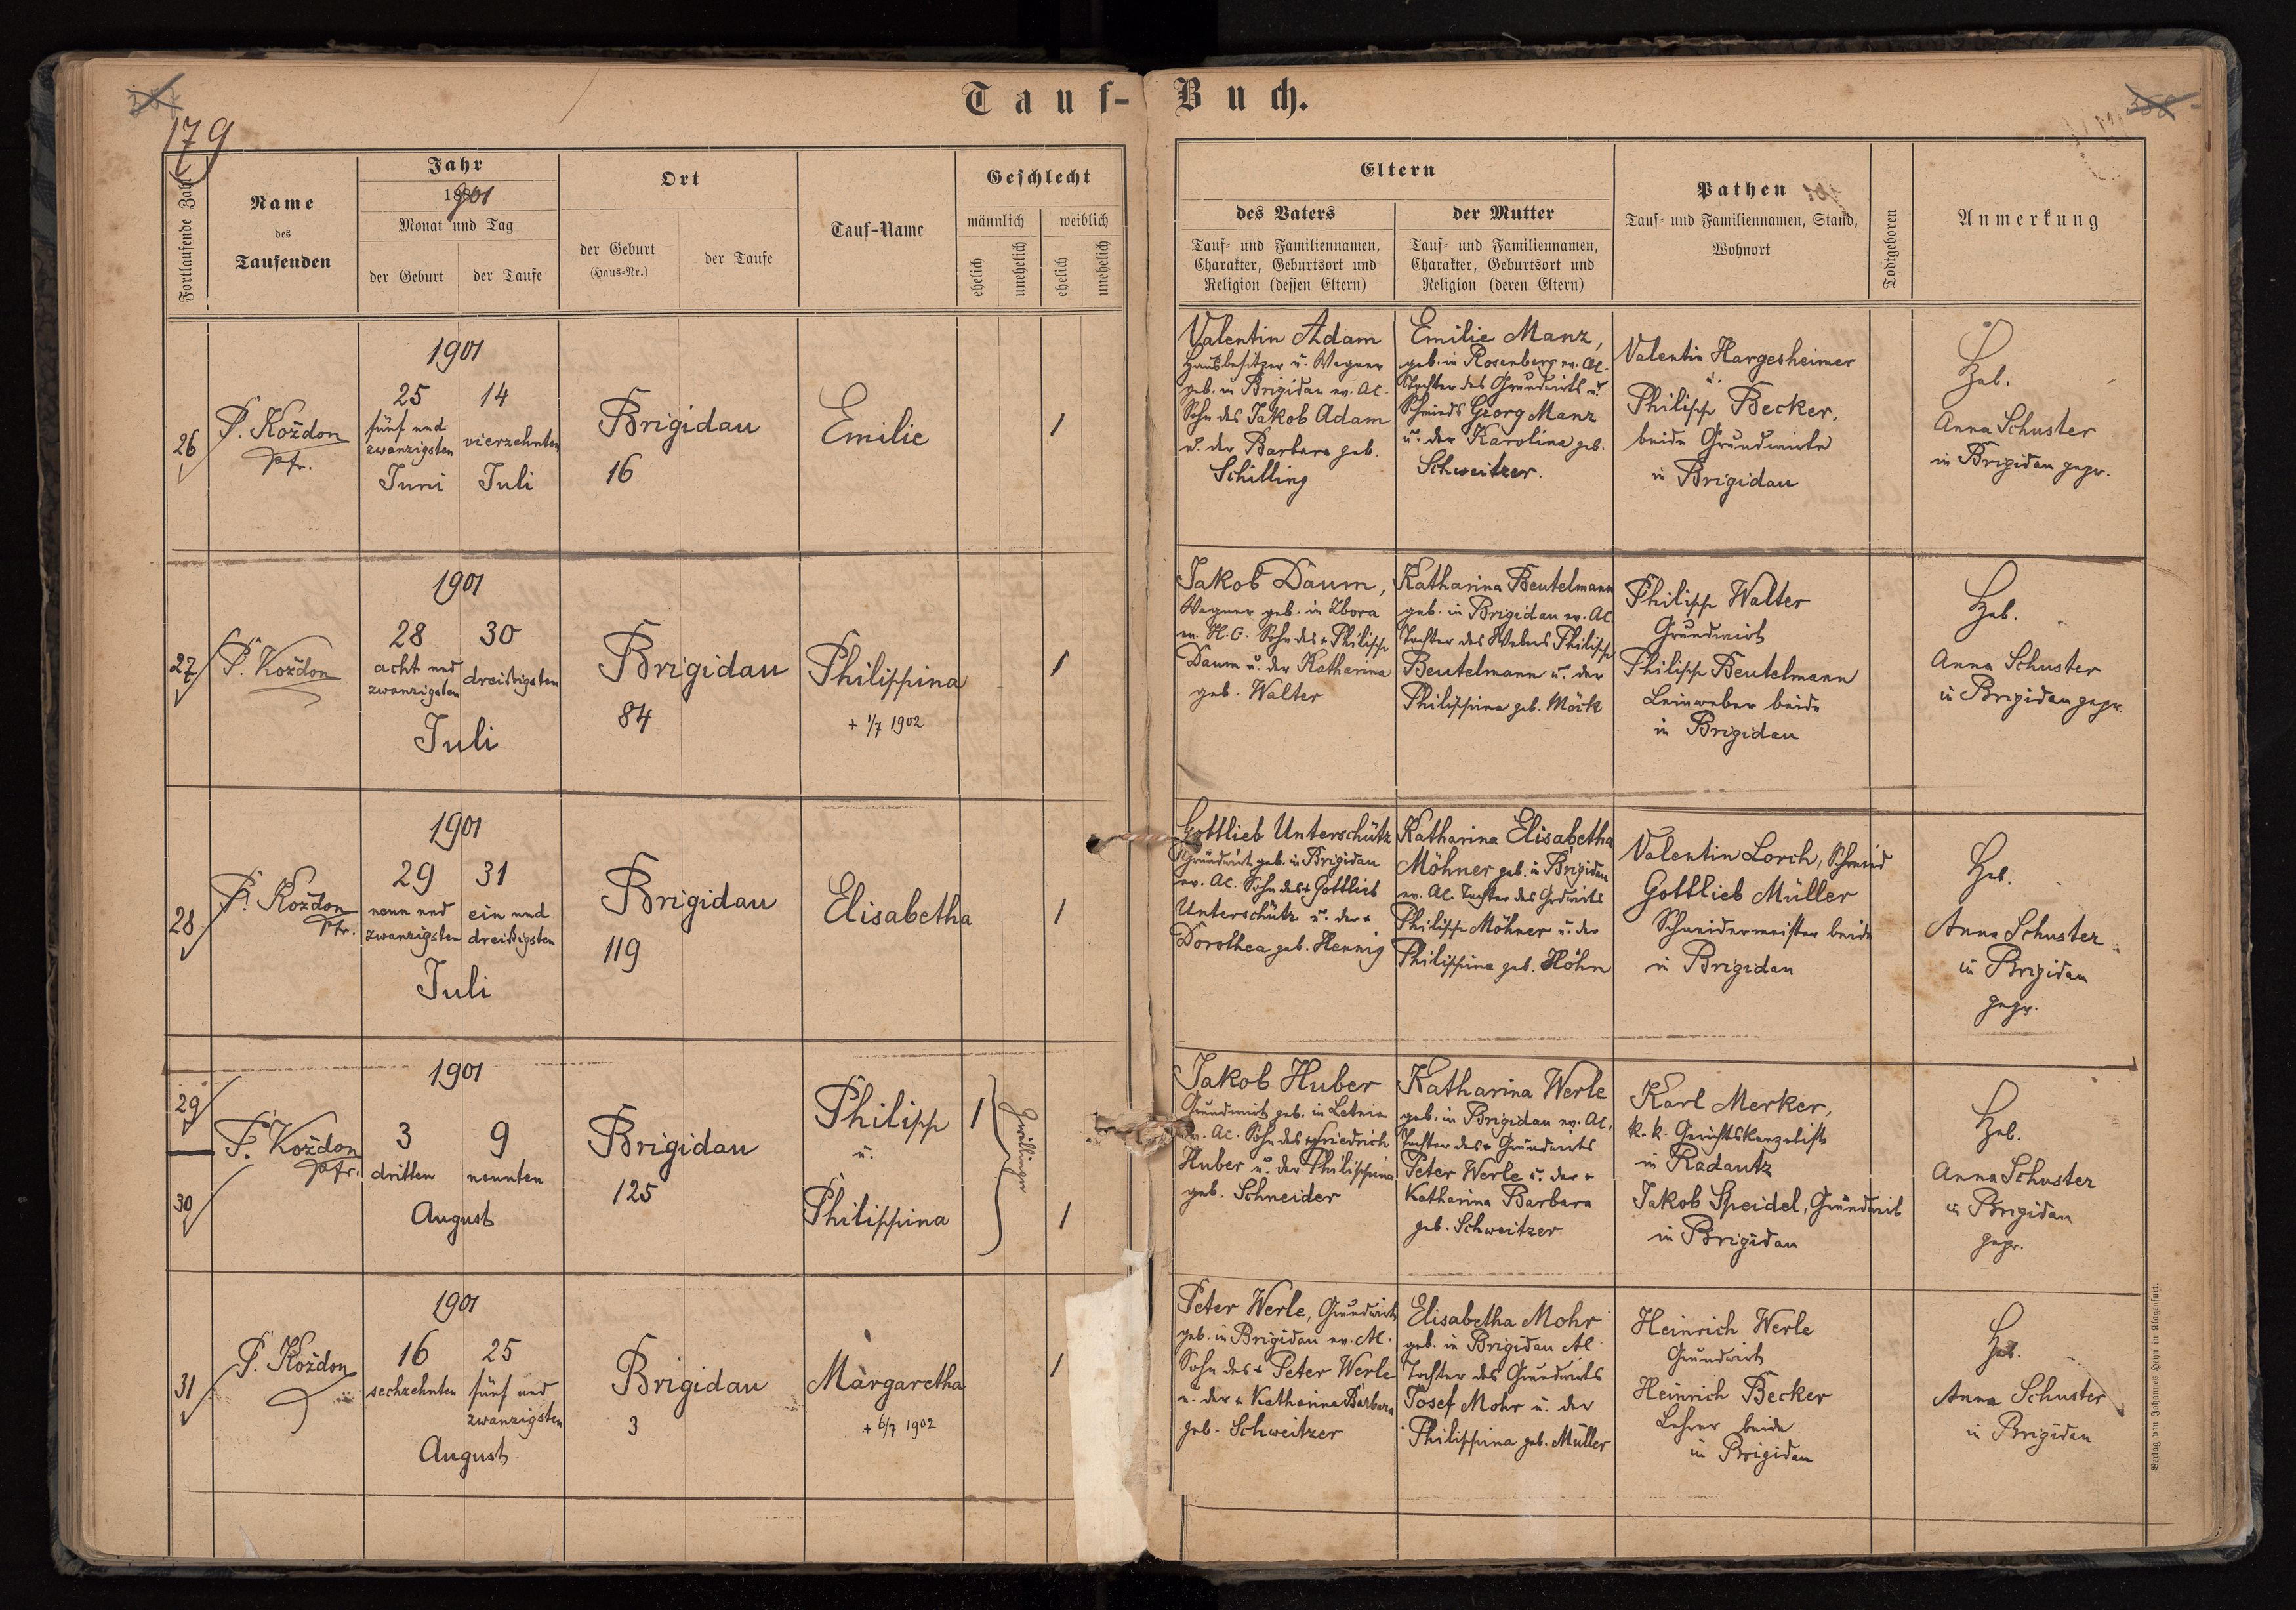 Tauf-Buch.
179
Fortlaufende Zahl
Name
des
Taufenden
Jahr
1901
Monat und Tag
der Geburt
der Taufe
Ort
der Geburt
(Haus-Nr.)
der Taufe
Tauf-Name
Geschlecht
männlich
weiblich
ehelich
unehelich
ehelich
unehelich
Eltern
des Vaters
Tauf- und Familiennamen,
Charakter, Geburtsort und
Religion (dessen Eltern)
der Mutter
Tauf- und Familiennamen,
Charakter, Geburtsort und
Religion (deren Eltern)
Pathen
Tauf- und Familiennamen, Stand,
Wohnort
Todtgeboren
Anmerkung
26
P. Kożdon
Pfr.
1901
25 14
fünf und
zwanzigsten vierzehnten
Juni Juli
Brigidau
16
Emilie
1
Valentin Adam
Hausbesitzer u. Wagner
geb. in Brigidau ev. AC.
Sohn des Jakob Adam
u. der Barbara geb.
Schilling
Emilie Manz,
geb. in Rosenberg ev. AC.
Tochter des Grundwirts u.
Schmieds Georg Manz
u. der Karolina geb.
Schweitzer.
Valentin Hargesheimer
u.
Philipp Becker,
beide Grundwirte
in Brigidau
Heb.
Anna Schuster
in Brigidau gepr.
27
P. Kożdon
1901
28 30
acht und
zwanzigsten dreißigsten
Juli
Brigidau
84
Philippina
+ 1/7 1902
1
Jakob Daum,
Wagner geb. in Ugartsthal
ev. H.C. Sohn des + Philipp
Daum u. der Katharina
geb. Walter
Katharina Beutelmann
geb. in Brigidau ev. AC.
Tochter des Webers Philipp
Beutelmann u. der
Philippina geb. Möck
Philipp Walter
Grundwirt
Philipp Beutelmann
Leinweber beide
in Brigidau
Heb.
Anna Schuster
in Brigidau gepr.
28
P. Kożdon
Pfr.
1901
29 31
neun und ein und
zwanzigsten dreißigsten
Juli
Brigidau
119
Elisabetha
1
Gottlieb Unterschütz
Grundwirt geb. in Brigidau
ev. AC. Sohn des + Gottlieb
Unterschütz u. der +
Dorothea geb. Hennig
Katharina Elisabetha
Möhner geb. in Brigidau
ev. AC. Tochter des Grdwirts
Philipp Möhner u. der
Philippina geb. Höhn
Valentin Lorch, Schmied
Gottlieb Müller
Schneidermeister beide
in Brigidau
Heb.
Anna Schuster
in Brigidau
gepr.
29
30
P. Kożdon
Pfr.
1901
3 9
dritten neunten
August
Brigidau
125
Philipp
u.
Philippina
1
1
Zwillinge
Jakob Huber
Grundwirt geb. in Letnia
ev. AC. Sohn des + Friedrich
Huber u. der Philippina
geb. Schneider
Katharina Werle
geb. in Brigidau ev. AC.
Tochter des + Grundwirts
Peter Werle u. der +
Katharina Barbara
geb. Schweitzer
Karl Merker,
k. k. Gerichtskanzelist
in Radautz
Jakob Speidel, Grundwirt
in Brigidau
Heb.
Anna Schuster
in Brigidau
gepr.
31
P. Kożdon
1901
16 25
sechzehnten fünf und
zwanzigsten
August
Brigidau
3
Margaretha
+ 6/7 1902
1
Peter Werle, Grundwirt
geb. in Brigidau ev. AC.
Sohn des + Peter Werle
u. der + Katharina Barbara
geb. Schweitzer
Elisabetha Mohr
geb. in Brigidau AC
Tochter des Grundwirts
Josef Mohr u. der
Philippina geb. Müller
Heinrich Werle
Grundwirt
Heinrich Becker
Lehrer beide
in Brigidau
Heb.
Anna Schuster
in Brigidau
Verlag von Johannes Heyn in Klagenfurt.